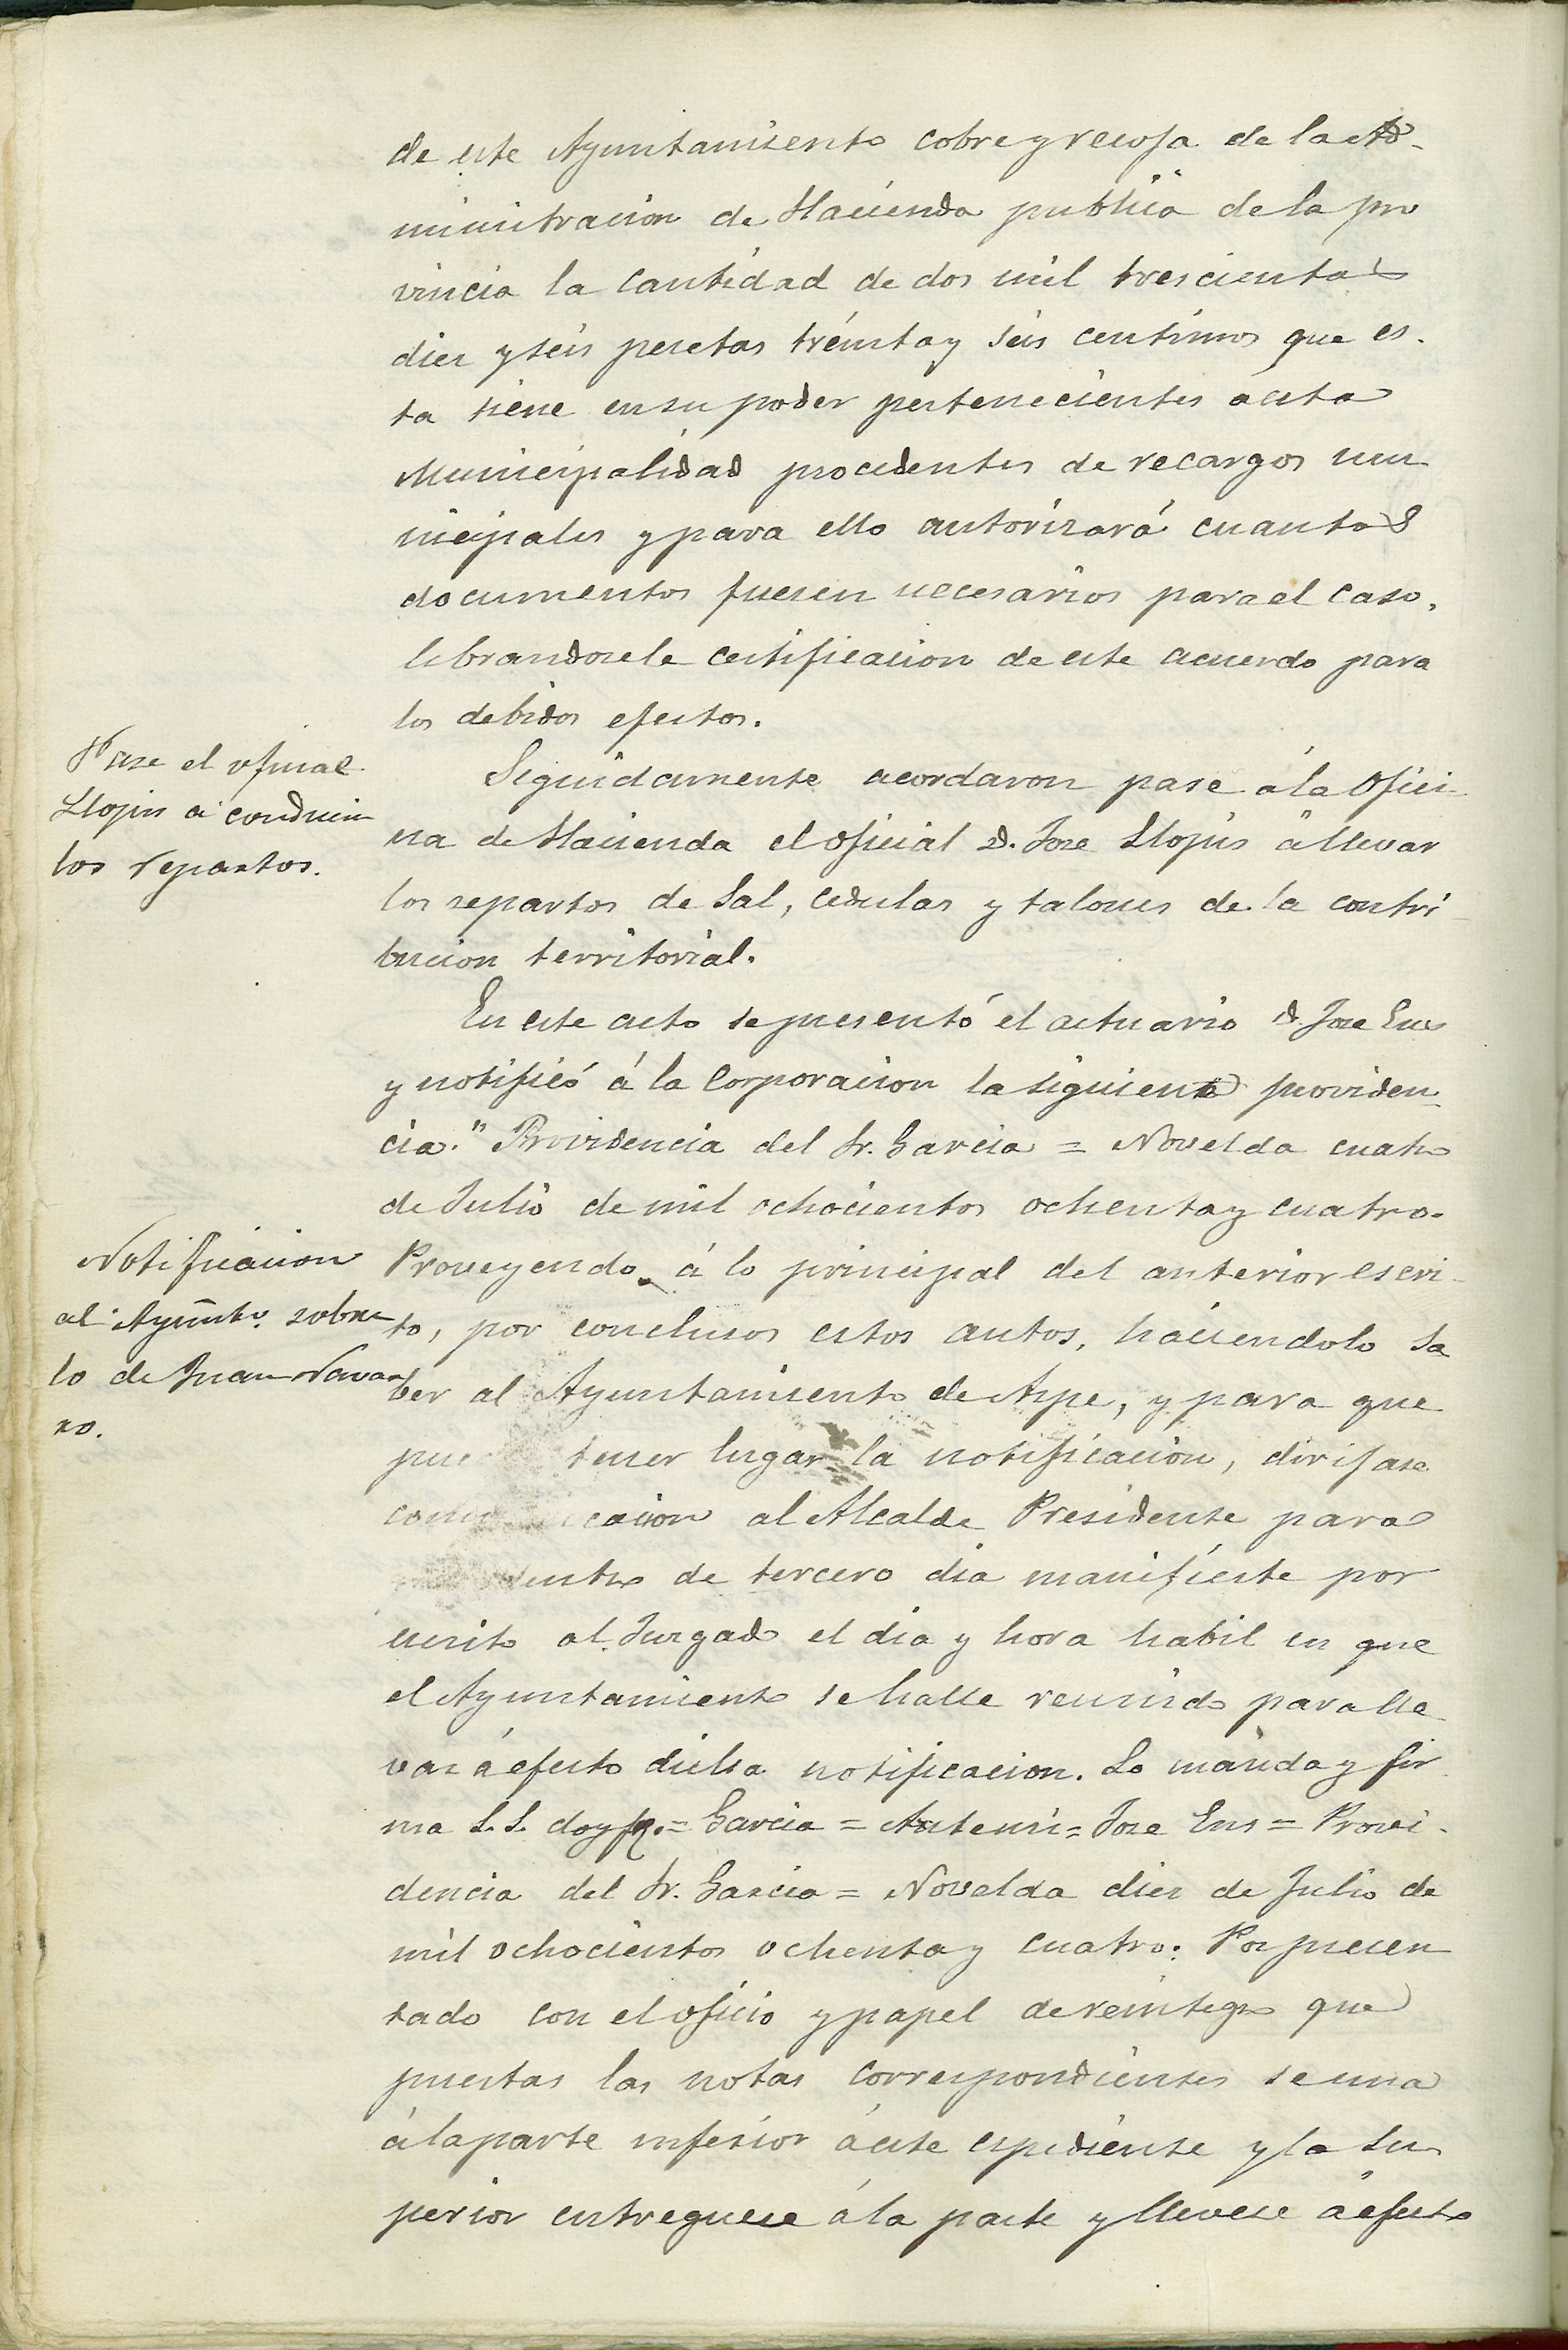 de este Ayuntamiento cobre y recoja de la Ad-
ministracion de Hacienda publica de la pro
vincia la cantidad de dos mil trescientas
diez y seis pesetas treinta y seis centimos que es-
ta tiene en su poder pertenecientes á esta
Municipalidad procedentes de recargos mu
nicipales y para ello autorizará cuantos
documentos fuesen necesarios para el caso,
librandosele certificacion de este acuerdo para
los debidos efectos.
Pase el oficial
Llopis á conducir
los repartos.
Seguidamente acordaron pase á la Ofici-
na de Hacienda el oficial D. Jose Llopis á llevar
los repartos de Sal, cedulas y talones de la contri-
bucion territorial.
En este acto se presentó el actuario D. Jose Ens
y notificó á la Corporacion la siguiente providen-
cia." Providencia del Sr. Garcia = Novelda cuatro
de Julio de mil ochocientos ochenta y cuatro.
Notificacion
al Ayunto. sobre
lo de Juan Navar
ro.
Proveyendo á lo principal del anterior escri-
to, por conclusos estos autos, haciendolo sa
ber al Ayuntamiento de Aspe, y para que
pue tener lugar la notificacion, dirijase
com icacion al Alcalde Presidente para
dentro de tercero dia manifieste por
escrito al Juzgado el dia y hora habil en que
el Ayuntamiento se halle reunido para lle-
var á efecto dicha notificacion. Lo manda y fir
ma S.S. doy fe. = Garcia = Antemi = Jose Ens = Provi-
dencia del Sr. Garcia = Novelda diez de Julio de
mil ochocientos ochenta y cuatro. Por presen
tado con el oficio y papel de reintegro que
puestas las notas correspondientes se una
á la parte inferior á este espediente y la su
perior entreguese á la parte y llevese á efecto